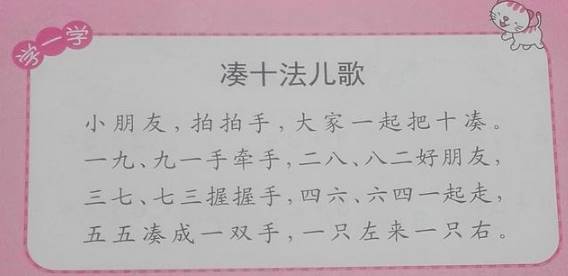 学一学
凑十法儿歌
小朋友,拍拍手,大家一起把十凑。
一九、九一手牵手,二八、八二好朋友,
三七、七三握握手,四六、六四一起走,
五五凑成一双手,一只左来一只右。